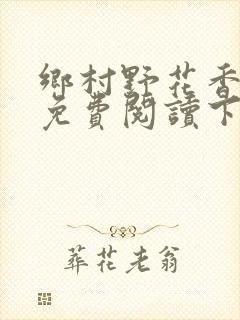 鄉村野花香
免費閱讀下
葬花老翁